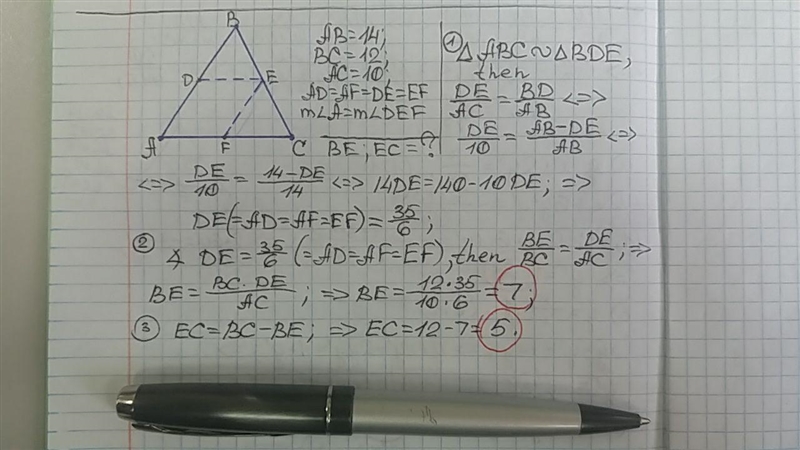 B
D E
A F C
AB=14;
BC=12;
AC=10;
AD=AF=DE=EF
m∠A=m∠DEF
BE; EC=?
① △ABC∾△BDE,
then
DE/AC = BD/AB <=>
DE/10 = AB-DE/AB <=>
<=> DE/10 = 14-DE/14 <=> 14DE=140-10DE; =>
DE(=AD=AF=EF)=35/6;
② ∢ DE=35/6 (=AD=AF=EF), then BE/BC = DE/AC; =>
BE=BC·DE/AC; => BE=12·35/10·6=7;
③ EC=BC-BE; => EC=12-7=5.